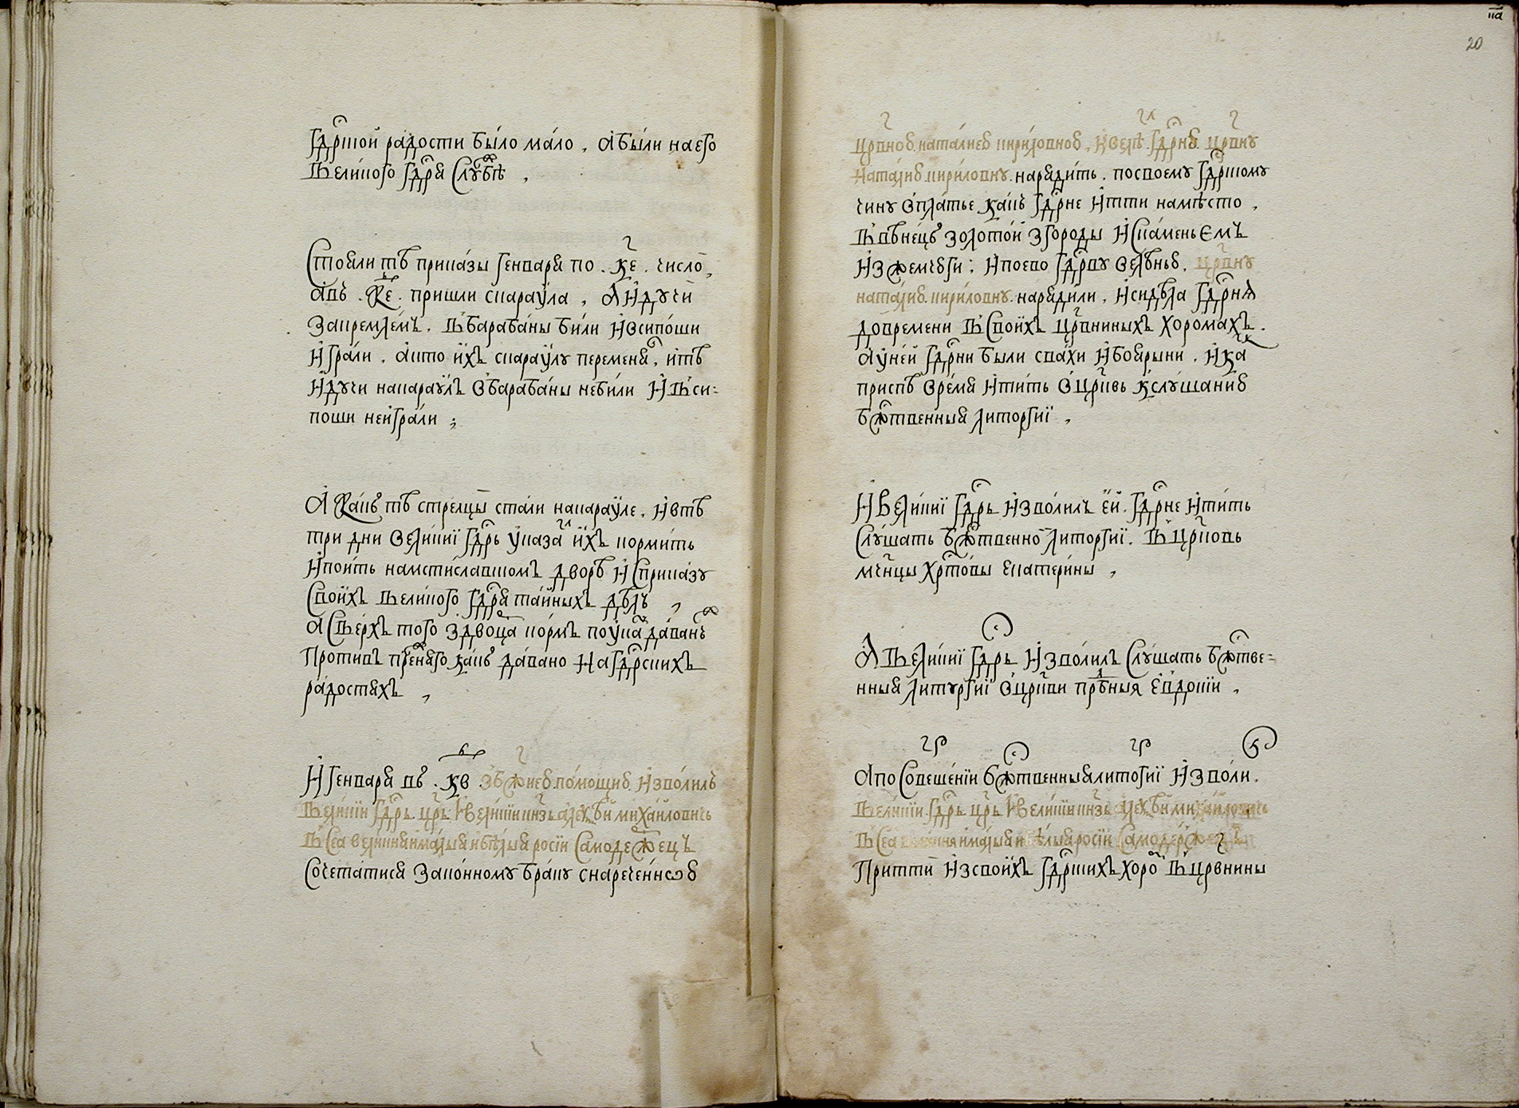 гд҃рской радости было мало , а были на его
великого гд҃ря службѣ ,
Стояли тѣ приказы генваря по . к҃е . число ,
а въ . к҃е . пришли с караула , А идучи
за кремлемъ . в барабаны били и в сипоши
играли . а кто ихъ с караулу переменя , и тѣ
идучи на караулъ в барабаны не били и в си-
поши не играли ;
А какъ тѣ стрелцы стали на карауле . и в тѣ
три дни великии гд҃рь указа ихъ кормить
и поить на мстиславскомъ дворѣ и с приказу
своихъ великого гд҃ря таиныхъ дѣлъ ,
а сверхъ того з дворца кормъ по указ даванъ
противъ прежняго какъ давано на гд҃рскихъ
радостяхъ ,
И генваря въ . к҃в з бж҃иею помощию изволилъ
великии гд҃рь цр҃ь и великии кн҃зь алеѯѣи михаиловичь
всеа великия и малыя и бѣлыя росии самодержецъ
сочетатися законному браку с нареченною
цр҃вною наталиею кириловною , и велѣ гд҃рню цр҃вну
наталию кириловну . нарядить . по своему гд҃рскому
чину в платье какъ гд҃рне итти на мѣсто ,
и в вѣнецъ золотои з городы и с каменьемъ
и з жемчюги : и по ево гд҃рву велѣнью . цр҃вну
наталию кириловну . нарядили . и сидѣла гд҃рня
до времени в своихъ цр҃вниныхъ хоромахъ .
а у неи гд҃рни были свахи и боярыни . и ка
приспѣ время итить в цр҃квь к слушанию
бж҃твенныя литоргии ,
И великии гд҃рь изволилъ еи . гд҃рне итить
слушать бж҃твенно литоргии . в цр҃ковь
мч҃нцы хр҃товы екатерины ,
А великии гд҃рь изволилъ слушать бж҃тве-
нныя литургии в цр҃кви прп҃бныя евдокии ,
А по совещении бж҃твенныя литоргии изволи .
великии . гд҃рь цр҃ь и великии кн҃зь алеѯѣи михаиловичь
всеа великия и малыя и бѣлыя росии самодержецъ
притти из своихъ гд҃рскихъ хоро в цр҃внины
20